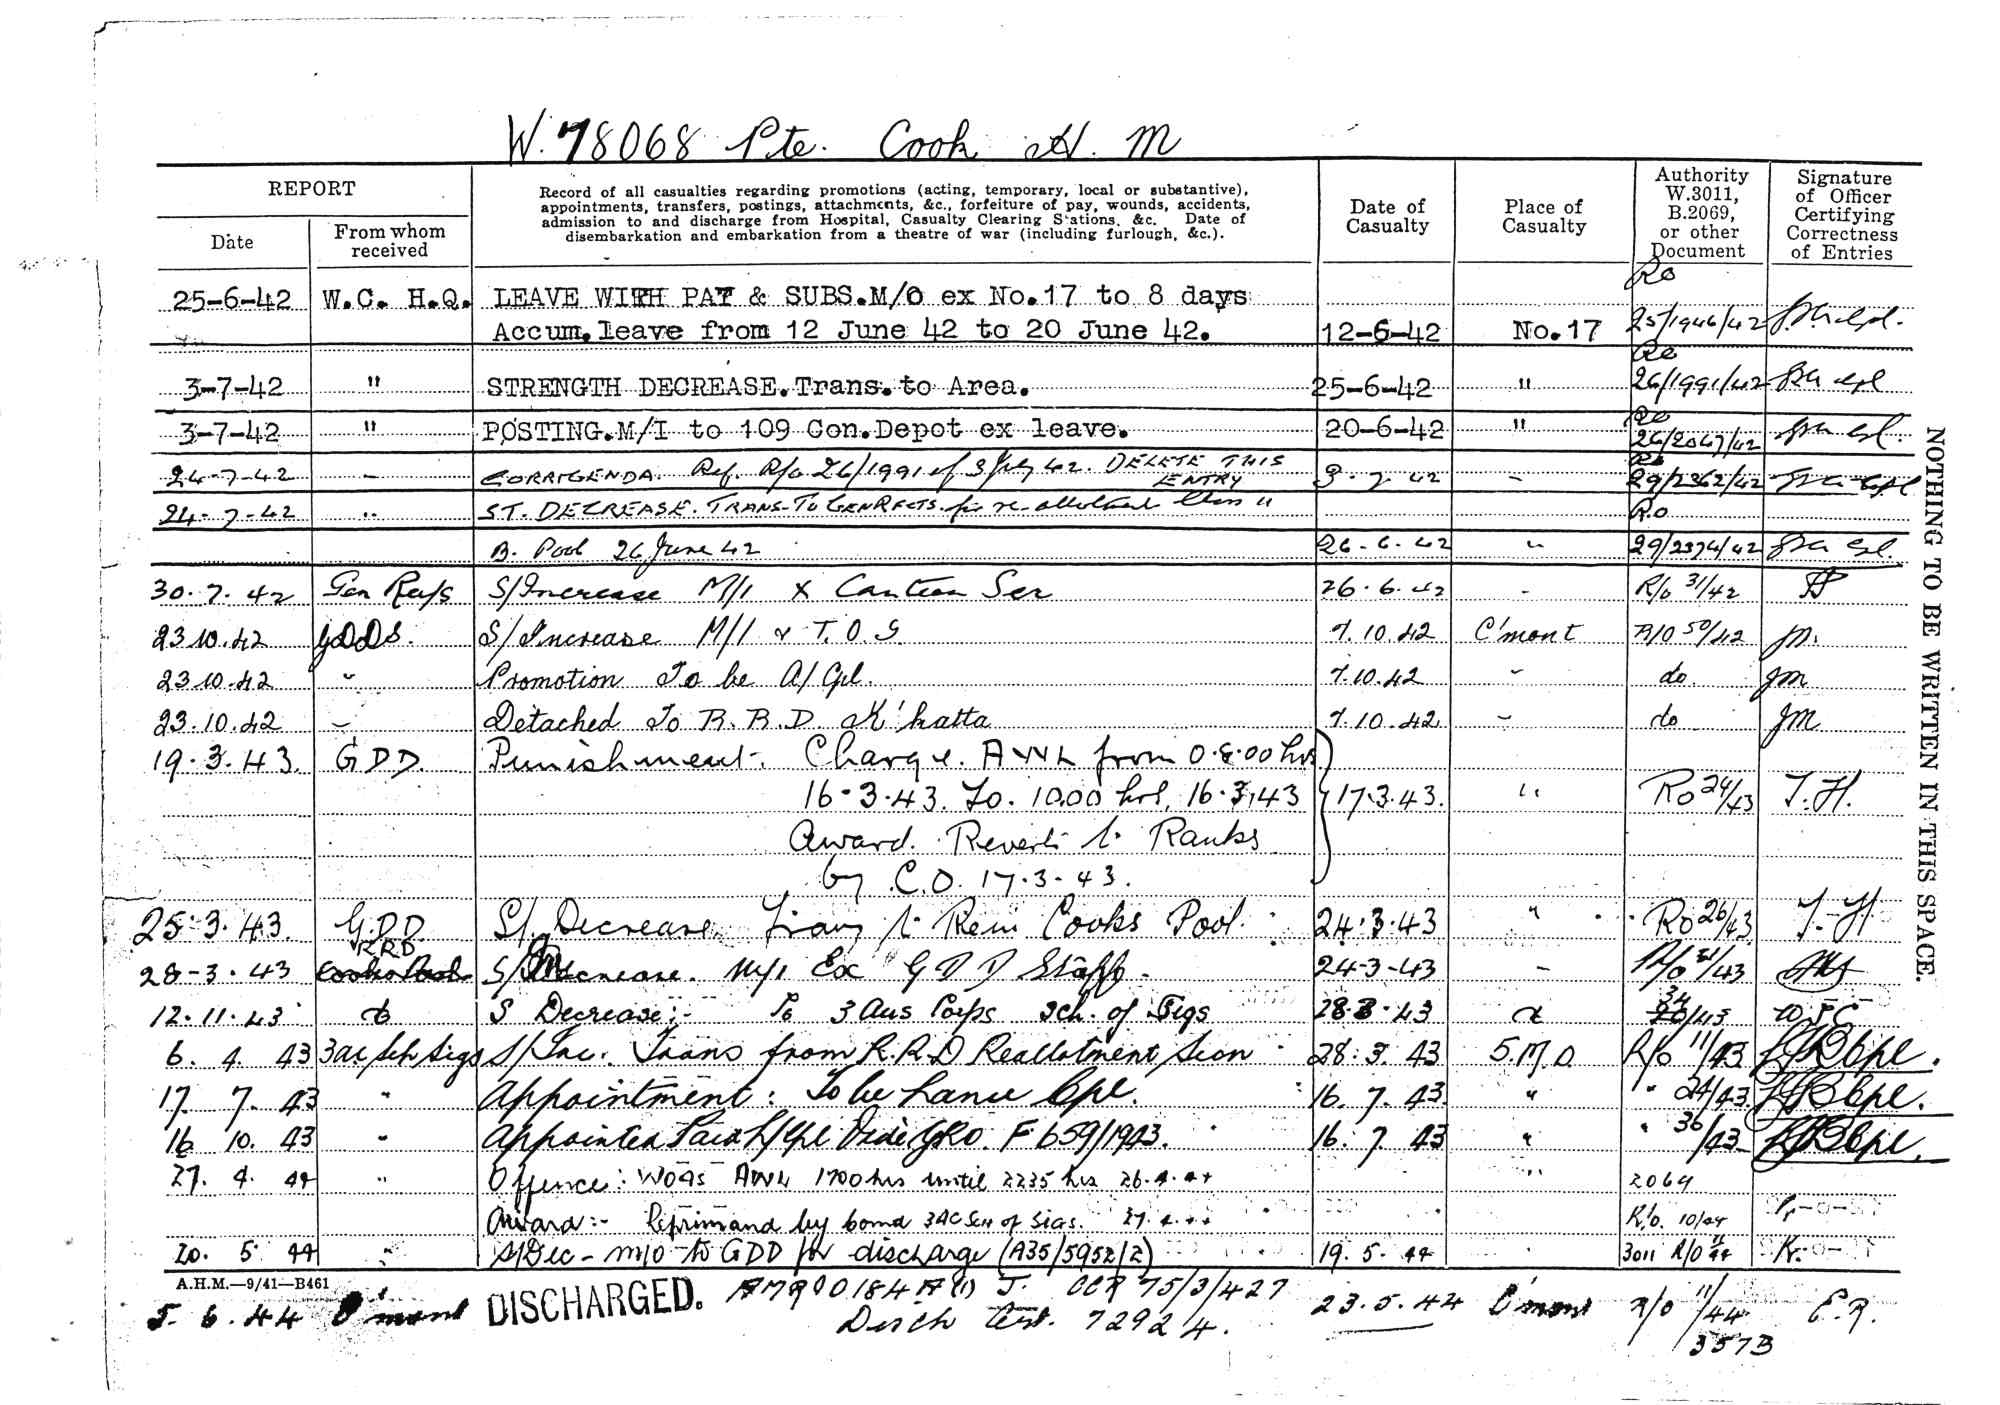 W.78068 Pte. Cook H. M
REPORT
Date
From whom received
Record of all casualties regarding promotions (acting, temporary, local or substantive),
appointments, transfers, postings, attachments, &c., forfeiture of pay, wounds, accidents,
admission to and discharge from Hospital, Casualty Clearing Stations, &c. Date of
disembarkation and embarkation from a theatre of war (including furlough, &c.).
Date of Casualty
Place of Casualty
Authority W.3011, B.2069, or other Document
Signature of Officer Certifying Correctness of Entries
Ro
25-6-42 W.C. H.Q. LEAVE WITH PAY & SUBS.M/O ex No.17 to 8 days
Accum.leave from 12 June 42 to 20 June 42. 12-6-42 No.17 25/1946/42
Ro
3-7-42 " STRENGTH DECREASE.Trans.to Area. 25-6-42 " 26/1991/42
Ro
3-7-42 " POSTING.M/I to 109 Con.Depot ex leave. 20-6-42 " 26/2047/42
Ro
24-7-42 - CORRIGENDA. Ref. R/o 26/1991 of 3 July 42. DELETE THIS ENTRY 3.7.42 - 29/2362/42
24-7-42 " ST. DECREASE. TRANS. TO GEN RECTS. for re-allotment Class II Ro
B. Pool 26 June 42 26.6.42 " 29/2374/42
30.7.42 S/Increase M/I X Canteen Ser 26.6.42 - R/o 31/42
23 10.42 S/Increase M/I & T.O.S 7.10.42 C'mont R/O 50/42 JM.
23 10.42 " Promotion To be A/Cpl. 7.10.42 " do. JM
23.10.42 " Detached To R.R.D. K'hatta 7.10.42 " do JM
19.3.43 GDD. Punishment. Charge. AWL from 0.8.00 hrs
16.3.43. To. 1000 hrs, 16.3.43 17.3.43. " Ro 24/43 T.H.
Award. Reverts to Ranks
by C.O. 17.3.43.
25.3.43. G.D.D. S/Decrease. Trans to Rein Cooks Pool. 24.3.43 " Ro 26/43 T.H
RRD
28-3.43 S/Increase. M/I Ex GDD Staff. 24-3-43 -
12.11.43 S Decrease:- To 3 Aus Corps Sch. of Sigs 28.3.43 34 /43
6. 4. 43 3 AC Sch Sigs S/Inc. Trans from R.R.D Reallotment Sion 28.3.43 S.M.D. R/o 11/43
17. 7. 43 " Appointment: To be Lance Cpl. 16. 7. 43. " " 24/43.
16 10. 43 " Appointed Paid L/Cpl Vide GRO. F 659/1943. 16. 7. 43 " " 36/43
27. 4. 44 " Offence: WOAS AWL 1700 hrs until 2235 hrs 26.4.44 " 2069
Award:- Reprimand by comd 3 AC Sch of Sigs. 27.4.44 R/o. 10/44
20. 5 44 " S/Dec - M/O to GDD for discharge (A35/5952/2) 19. 5. 44 3011 R/O 11/44
A.H.M.—9/41—B461
5. 6. 44 C'mont DISCHARGED. AMR00184A(1) J. CCR 75/3/427 23.5.44 C'mont R/O 11/44 E.R.
Disch Cert. 72924. 3573
NOTHING TO BE WRITTEN IN THIS SPACE.